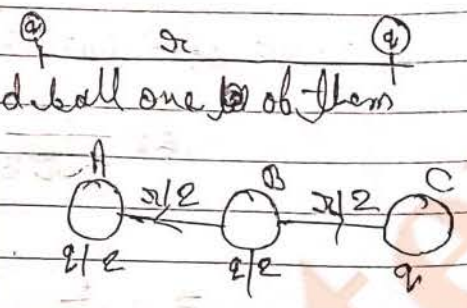 q r q
d ball one of them
A r/2 B r/2 C
q/2 q/2 q